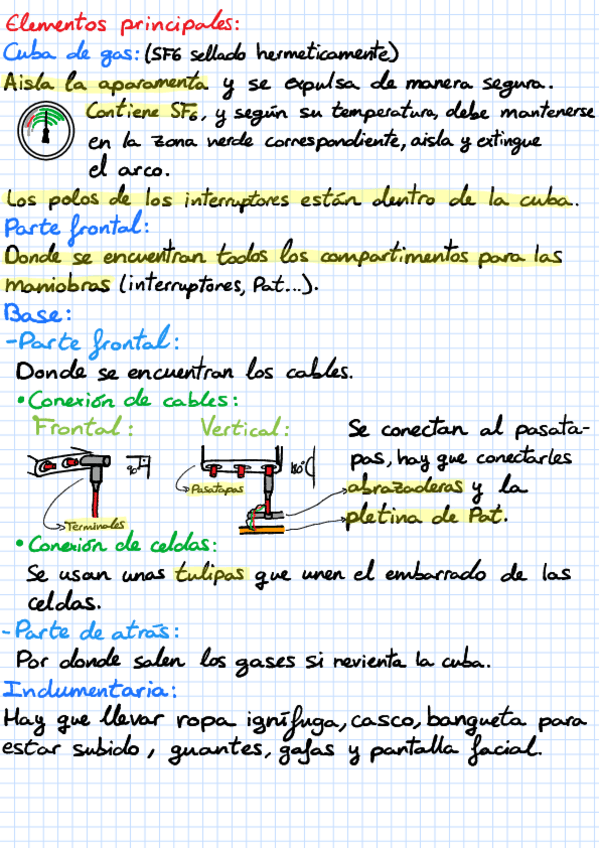 Elementos principales:
Cuba de gas: (SF6 sellado hermeticamente)
Aisla la aparamenta y se expulsa de manera segura.
Contiene SF6, y según su temperatura, debe mantenerse
en la zona verde correspondiente, aisla y extingue
el arco.
Los polos de los interruptores están dentro de la cuba.
Parte frontal:
Donde se encuentran todos los compartimentos para las
maniobras (interruptores, Pat...).
Base:
-Parte frontal:
Donde se encuentran los cables.
• Conexión de cables:
Frontal:
90º
Terminales
Vertical:
180º
Pasatapas
Se conectan al pasata-
pas, hay que conectarles
abrazaderas y la
pletina de Pat.
• Conexión de celdas:
Se usan unas tulipas que unen el embarrado de las
celdas.
-Parte de atrás:
Por donde salen los gases si revienta la cuba.
Indumentaria:
Hay que llevar ropa ignífuga, casco, bangueta para
estar subido, guantes, gafas y pantalla facial.